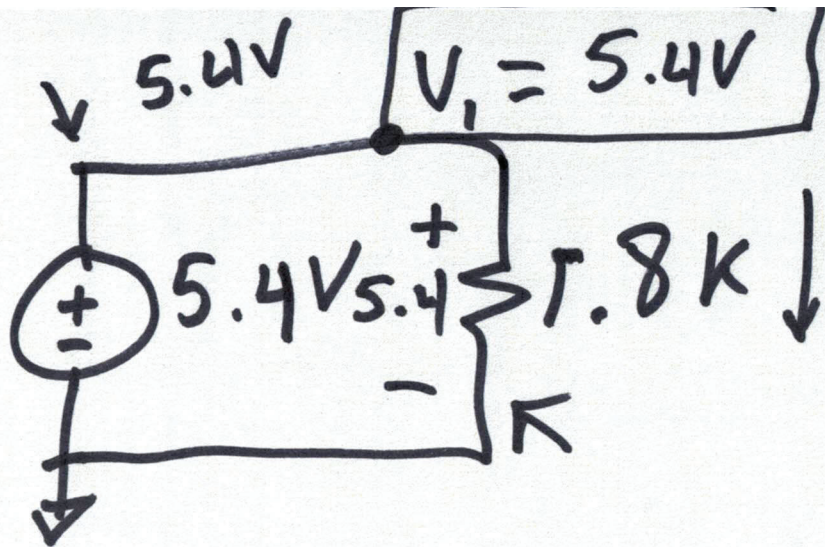 5.4V
V₁ = 5.4V
+
+
-
5.4V
5.4
1.8K
-